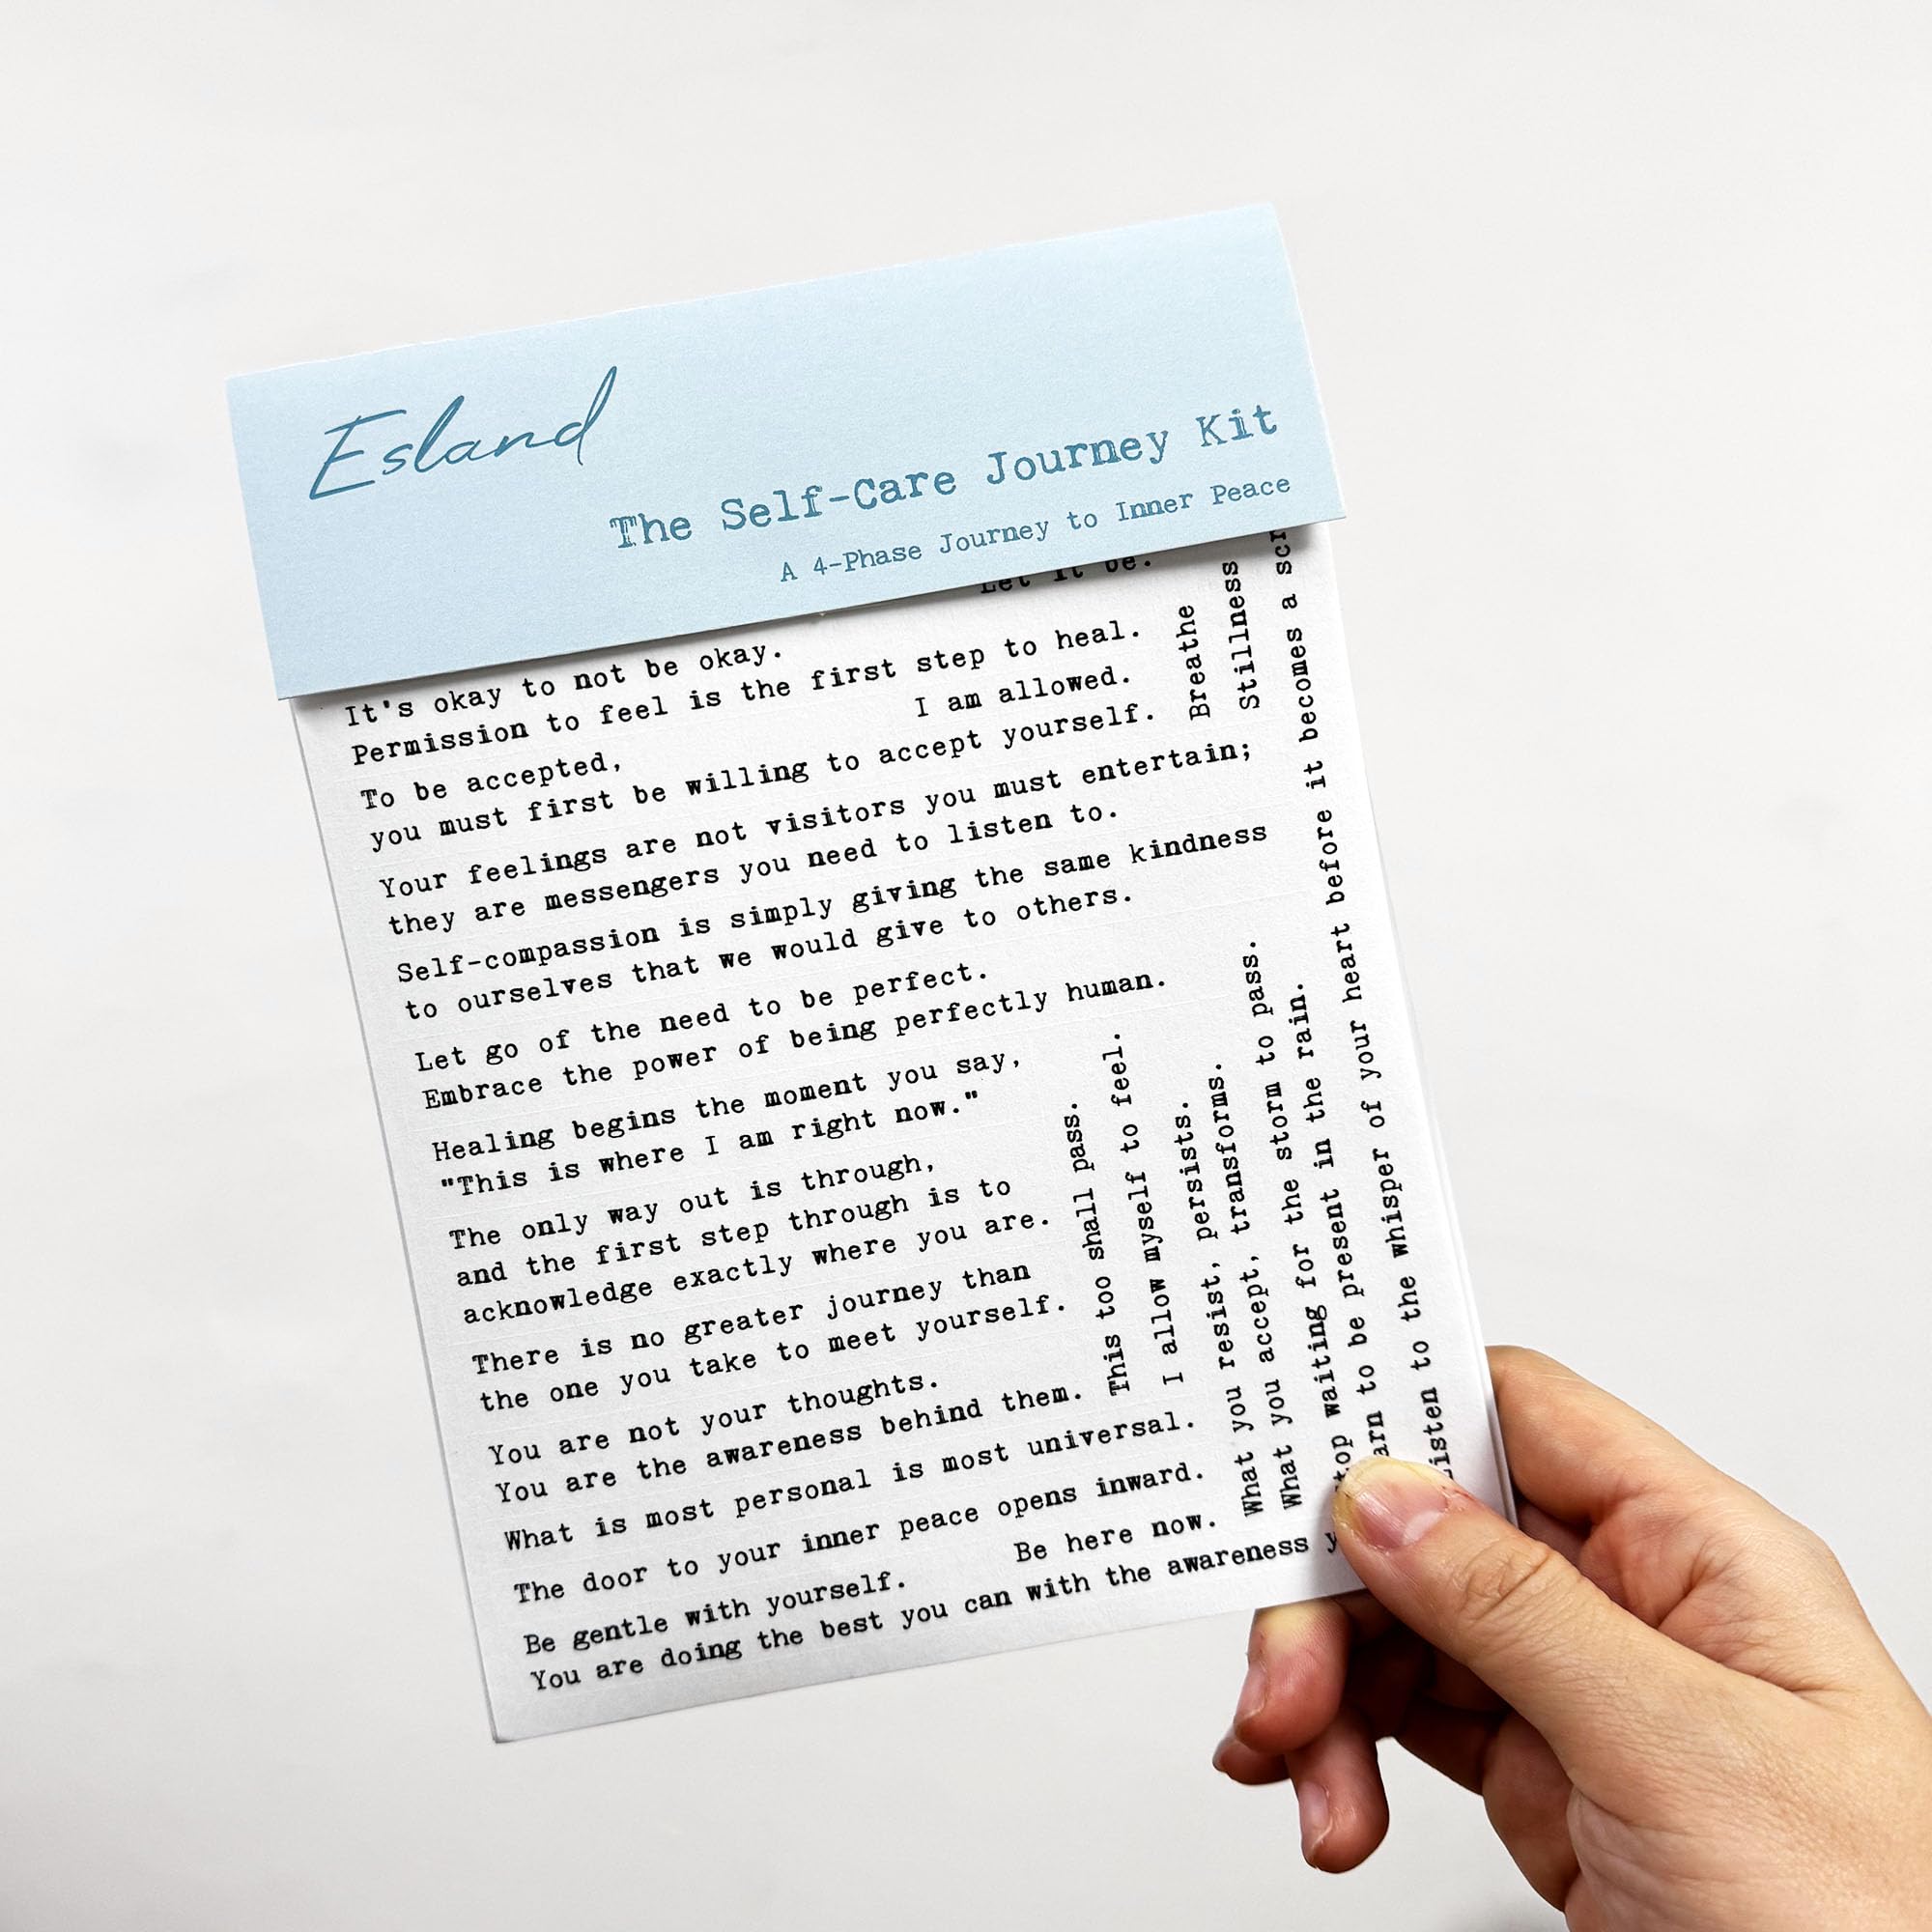 Esland
The Self-Care Journey Kit
A 4-Phase Journey to Inner Peace
Let it be.
It's okay to not be okay.
Permission to feel is the first step to heal.
I am allowed.
To be accepted,
you must first be willing to accept yourself.
Your feelings are not visitors you must entertain;
they are messengers you need to listen to.
Self-compassion is simply giving the same kindness
to ourselves that we would give to others.
Let go of the need to be perfect.
Embrace the power of being perfectly human.
Healing begins the moment you say,
"This is where I am right now."
The only way out is through,
and the first step through is to
acknowledge exactly where you are.
There is no greater journey than
the one you take to meet yourself.
You are not your thoughts.
You are the awareness behind them.
What is most personal is most universal.
The door to your inner peace opens inward.
Be here now.
Be gentle with yourself.
You are doing the best you can with the awareness
This too shall pass.
I allow myself to feel.
What you resist, persists.
What you accept, transforms.
waiting for the storm to pass.
to be present in the rain.
to the whisper of your heart before it becomes a
Breathe
Stillness